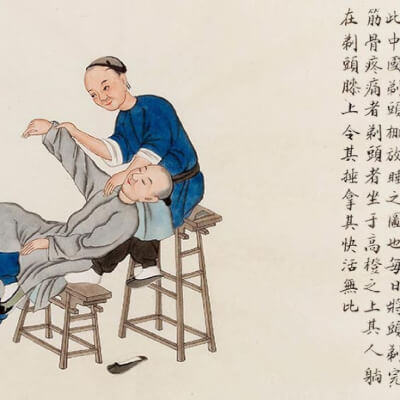 此中國剃頭棚放睡之圖也每日將頭剃完
筋骨疼痛者剃頭者坐于高橙之上其人躺
在剃頭膝上令其捶拿其快活無比